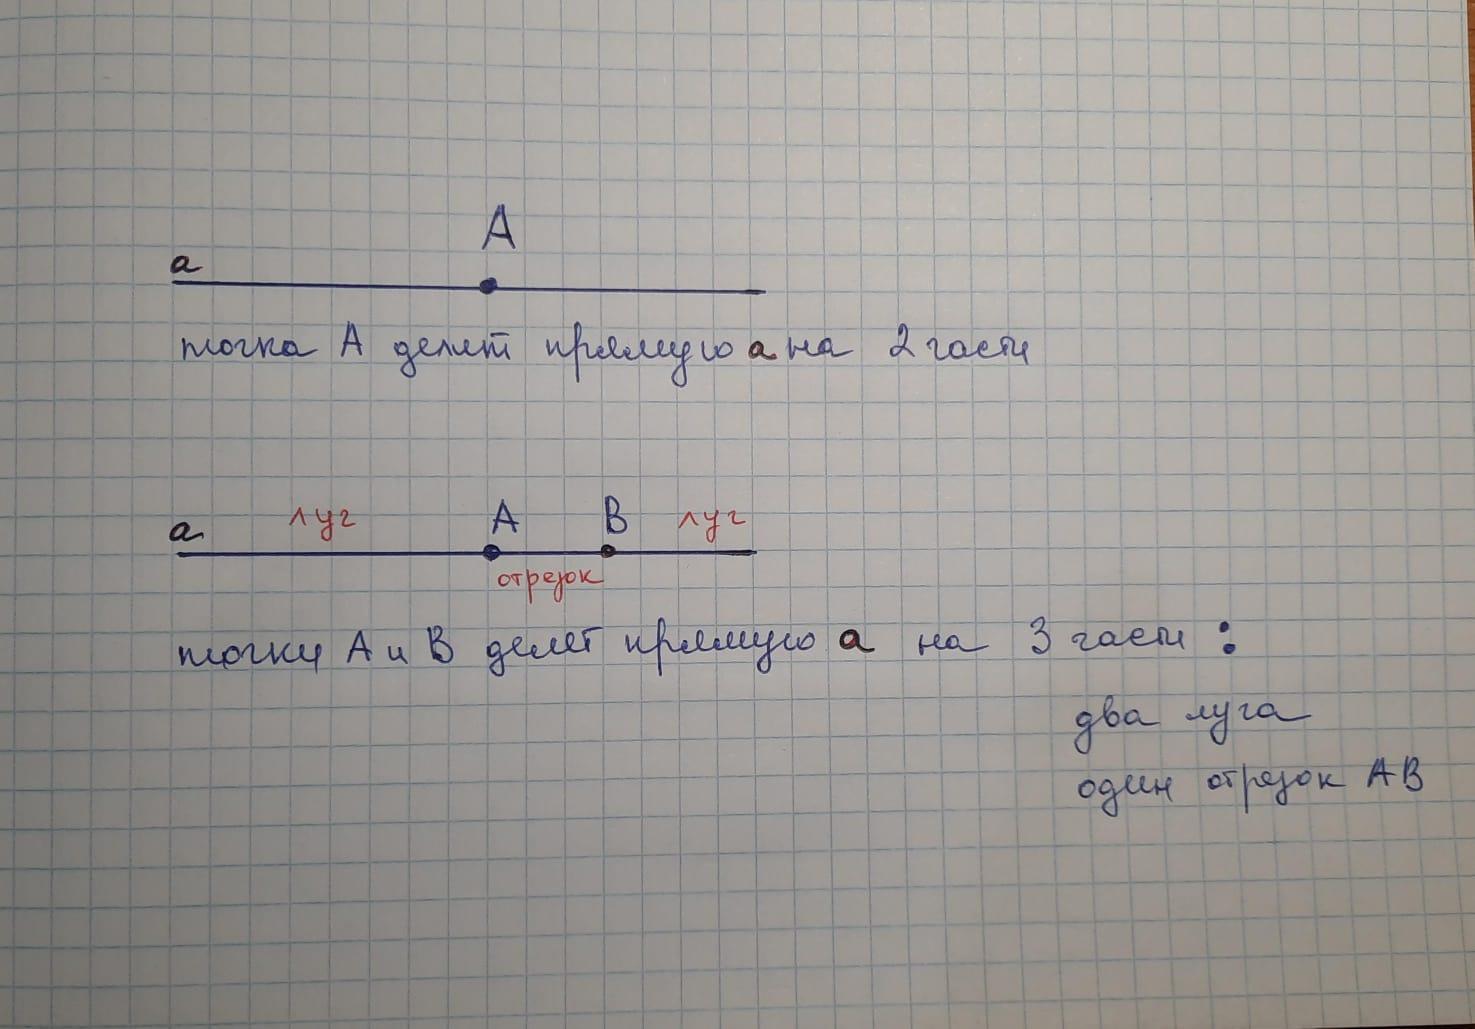 A
a
точка А делит прямую а на 2 части
a луч A B луч
отрезок
точки А и В делят прямую а на 3 части :
два луча
один отрезок АВ